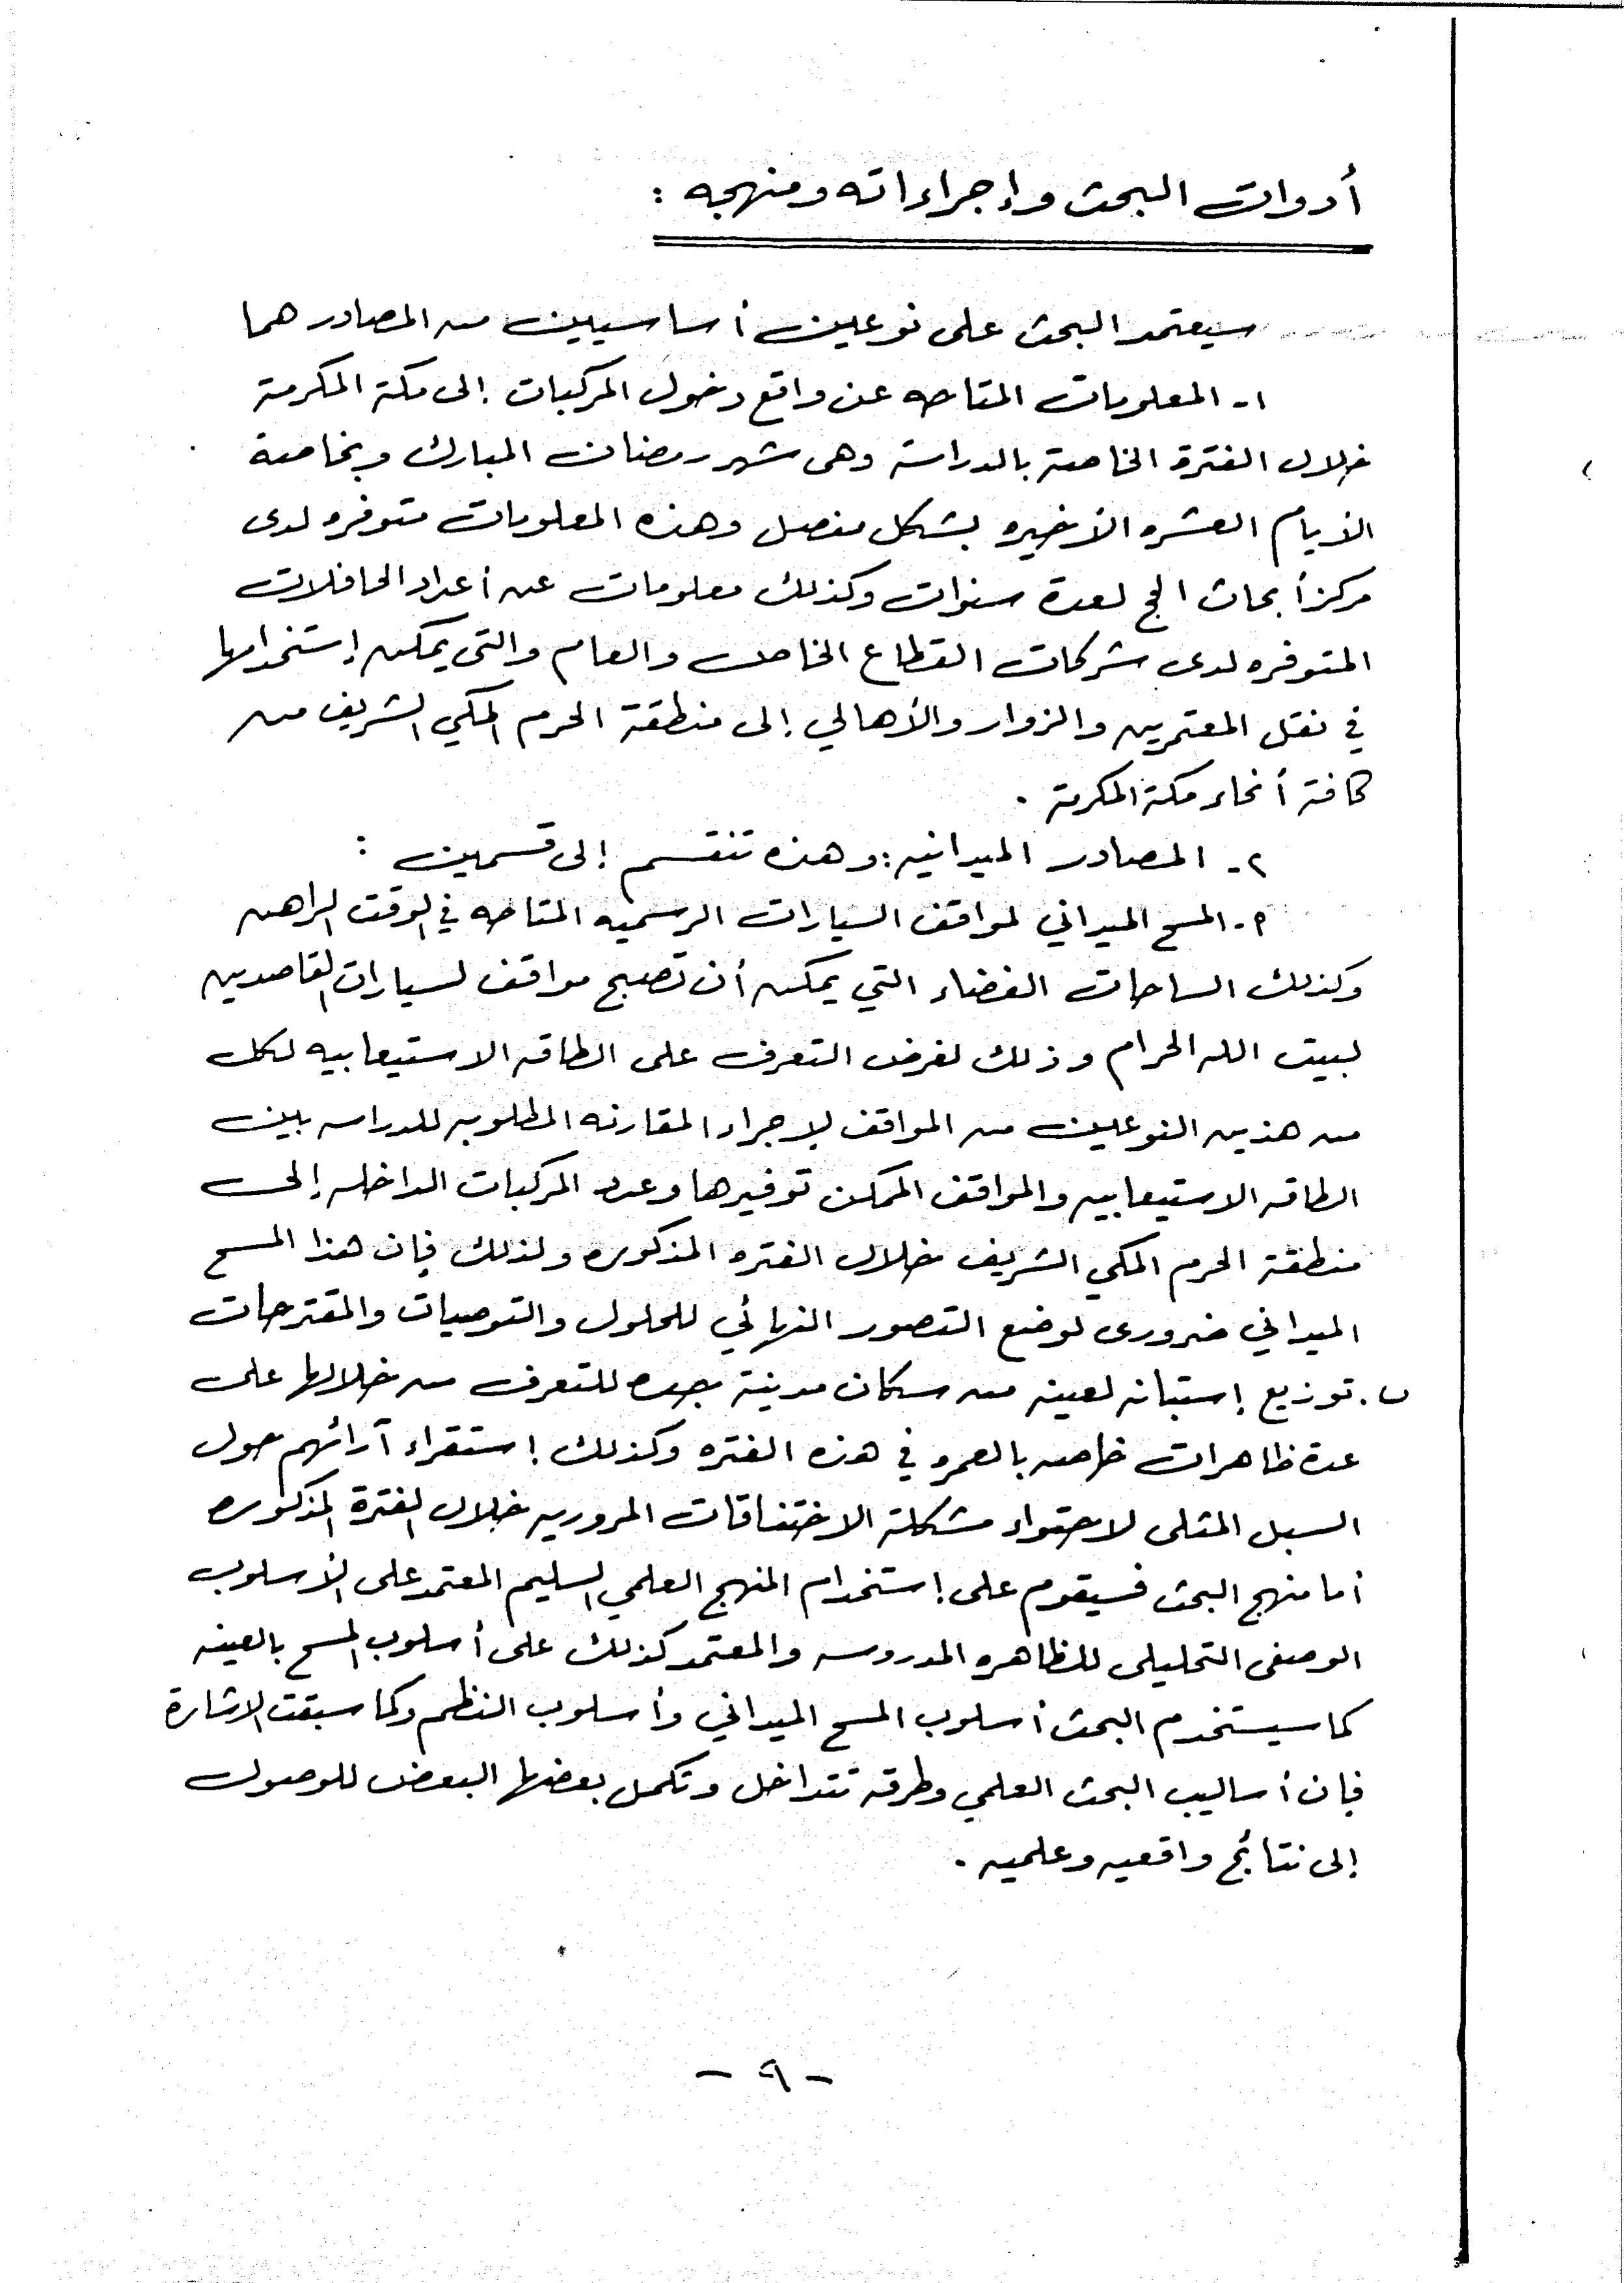 أدوات البحث وإجراءاته ومنهجه :
سيعتمد البحث على نوعين أساسيين من المصادر هما
١- المعلومات المتاحه عن واقع دخول المركبات إلى مكة المكرمة
خلال الفترة الخاصة بالدراسة وهى شهر رمضان المبارك وبخاصة
الأيام العشره الأخيره بشكل مفصل وهذه المعلومات متوفره لدى
مركز أبحاث الحج لعدة سنوات وكذلك معلومات عن أعداد الحافلات
المتوفره لدى شركات القطاع الخاص والعام والتى يمكن إستخدامها
في نقل المعتمرين والزوار والأهالي إلى منطقة الحرم المكي الشريف من
كافة أنحاء مكة المكرمة .
٢- المصادر الميدانيه : وهذه تنقسم إلى قسمين :
٢- المسح الميداني لمواقف السيارات الرسميه المتاحه في الوقت الراهن
وكذلك الساحات الفضاء التي يمكن أن تصبح مواقف لسيارات القاصدين
لبيت الله الحرام وذلك لغرض التعرف على الطاقه الاستيعابيه لكل
من هذين النوعين من المواقف لإجراء المقارنه المطلوبه للدراسه بين
الطاقه الاستيعابيه والمواقف الممكن توفيرها وعدد المركبات الداخله إلى
منطقة الحرم المكي الشريف خلال الفتره المذكوره ولذلك فإن هذا المسح
الميداني ضرورى لوضع التصور النهائي للحلول والتوصيات والمقترحات
ب. توزيع إستبانه لعينه من سكان مدينة جده للتعرف من خلالها على
عدة ظاهرات خاصه بالعمره في هذه الفتره وكذلك إستقراء آرائهم حول
السبل المثلى لاحتواء مشكلة الاختناقات المروريه خلال الفترة المذكوره
أما منهج البحث فسيقوم على إستخدام المنهج العلمي السليم المعتمد على الأسلوب
الوصفى التحليلى للظاهره المدروسه والمعتمد كذلك على أسلوب المسح بالعينه
كما سيستخدم البحث أسلوب المسح الميداني وأسلوب النظم وكما سبقت الاشارة
فإن أساليب البحث العلمي وطرقه تتداخل وتكمل بعضها البعض للوصول
إلى نتائج واقعيه وعلميه .
- ٩ -